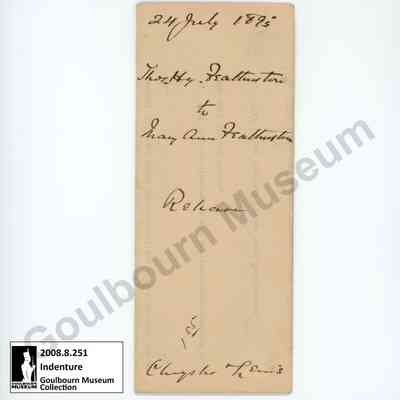 24 July 1895
Thos. Hy. Featherston
to
Mary Ann Featherston
Release
Chrysler & Lewis
Goulbourn Museum
2008.8.251
Indenture
Goulbourn Museum
Collection
GOULBOURN
MUSEUM